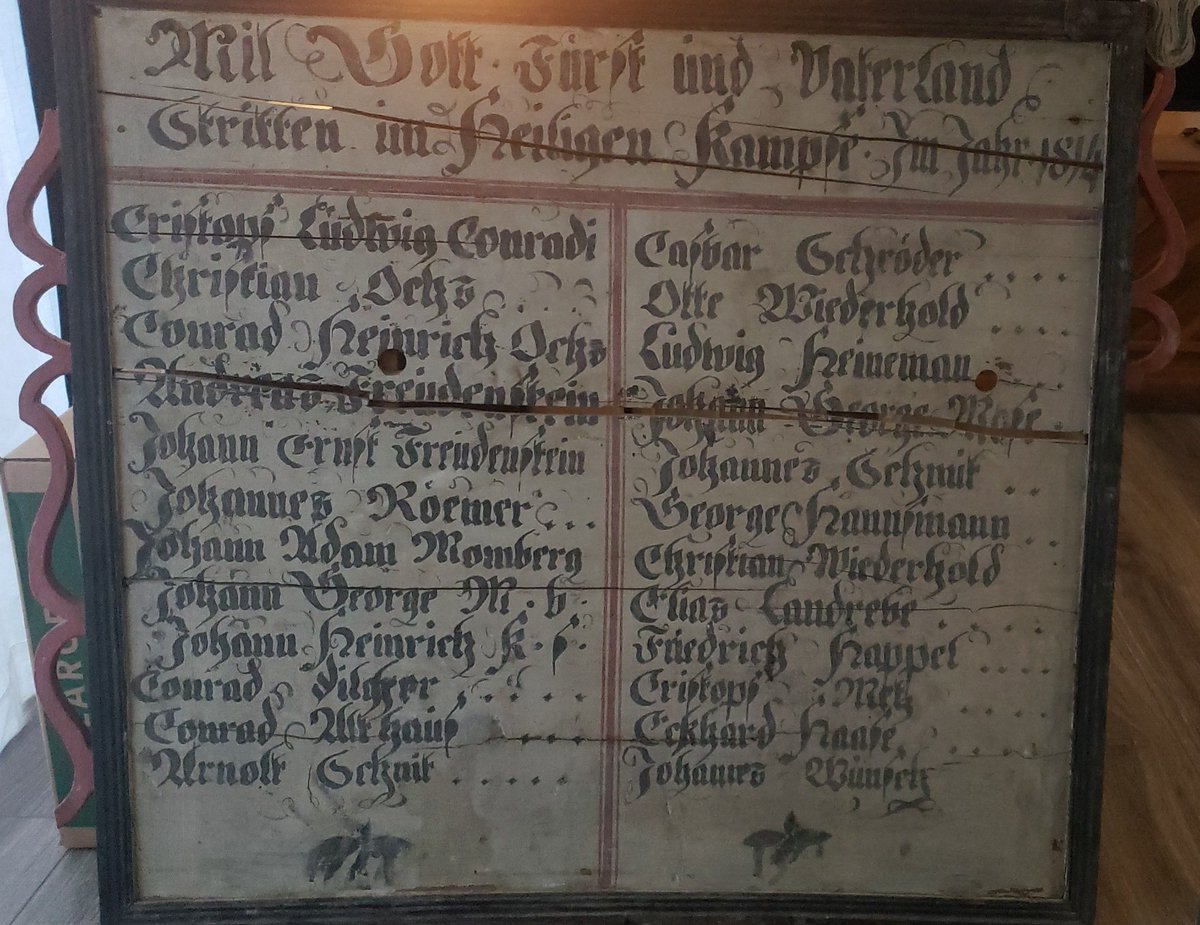 Mit Gott. Fürst und Vaterland
Stritten im Heiligen Kampfe. Im Jahr 1814
Cristoph Ludwig Conradi
Christian Ochs
Conrad Heinrich Ochs
Andreas Freudenstein
Johann Ernst Freudenstein
Johannes Röemer ...
Johann Adam Momberg
Johann George M. b.
Johann Heinrich K. f.
Conrad ....
Conrad Althaus ....
Arnolt Schmit .....
Casbar Schröder ....
Otte Wiederhold ....
Ludwig Heineman ...
Johann George Mose
Johannes Schmit ..
George Hannsmann ..
Christian Wiederhold
Elias Landrebe ....
Friedrich Happel ....
Cristoph Metz ....
Eckhard Haase. ....
Johanes Wünsch